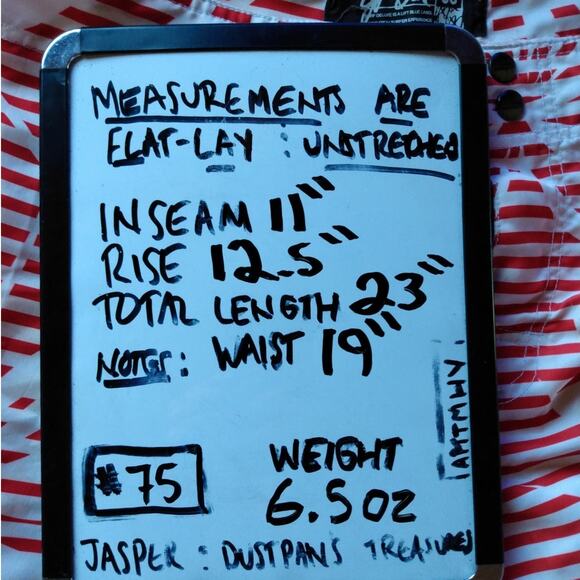 MEASUREMENTS ARE
FLAT-LAY : UNSTRETCHED
INSEAM 11"
RISE 12.5"
TOTAL LENGTH 23"
NOTES: WAIST 19"
AMTMHY
#75
WEIGHT
6.5oz
JASPER : DUSTPANS TREASURES